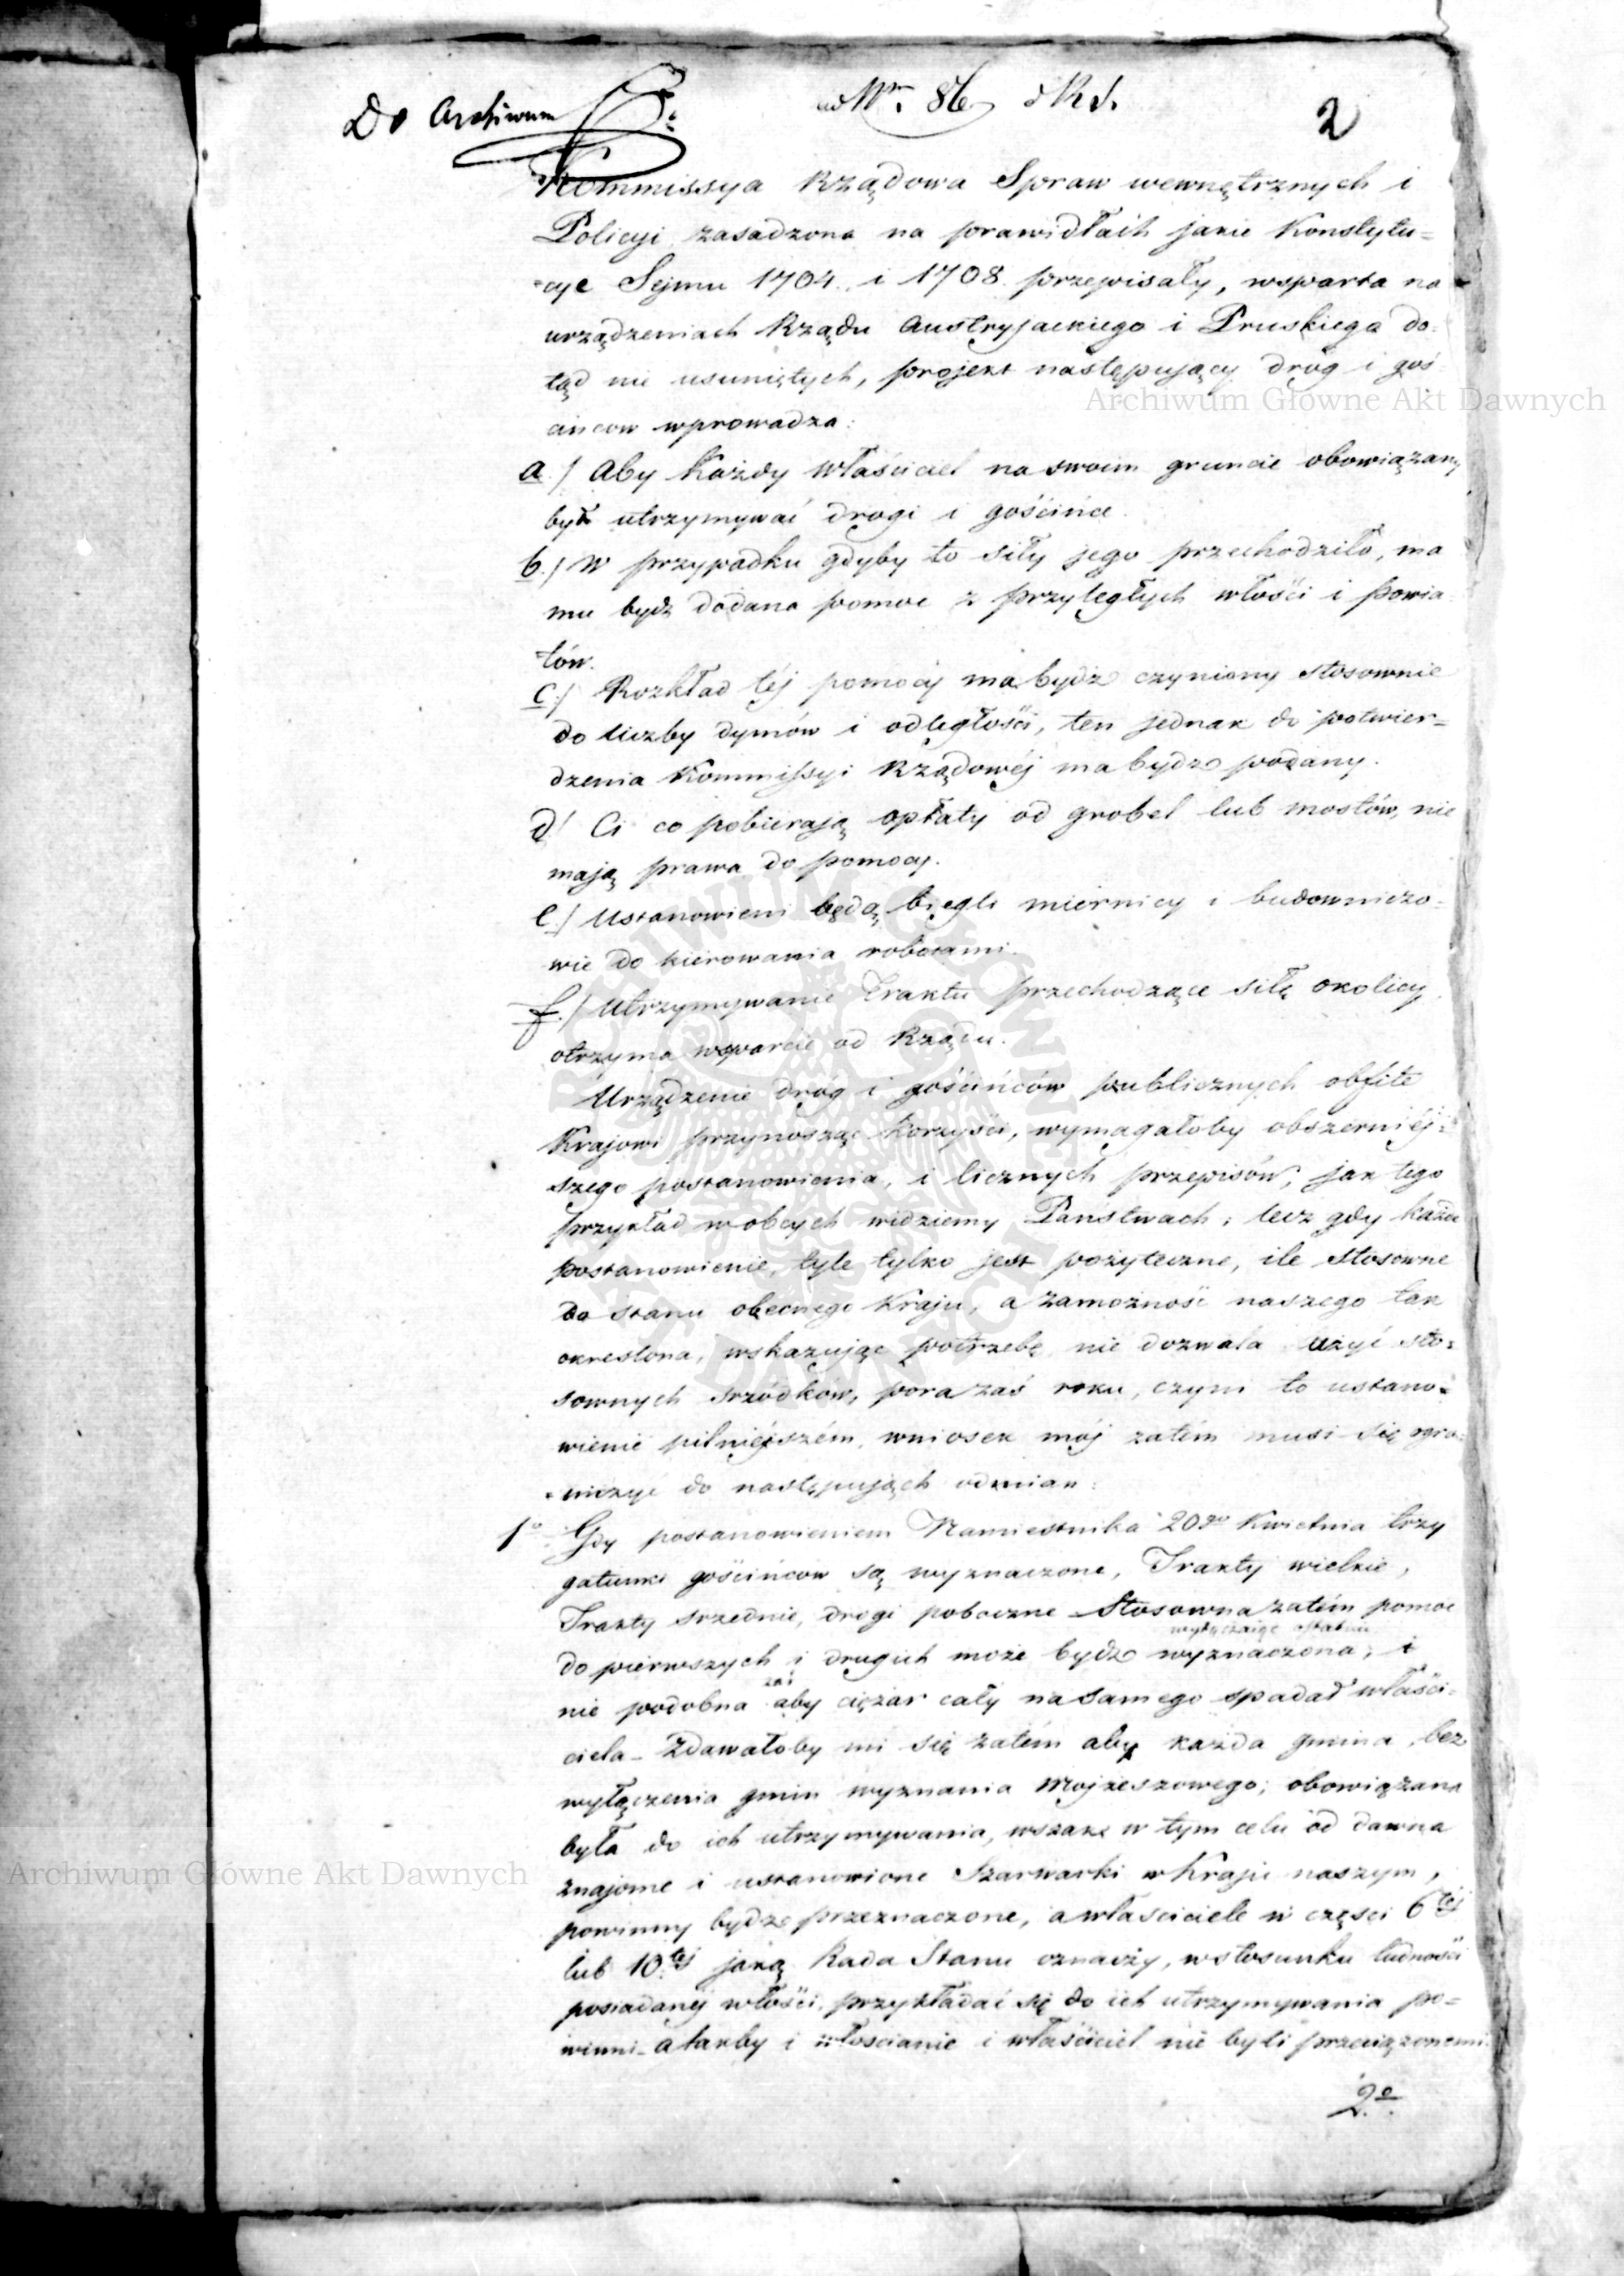 Do Archiwum
ad Nrm. 86 R S.
2
Kommissya Rządowa Spraw wewnętrznych i
Policyi zasadzona na prawidłach jakie Konstytu=
=cye Sejmu 1764. i 1768 przepisały, wsparta na
urządzeniach Rządu Austryjackiego i Pruskiego do=
tąd nie usuniętych, projekt następujący dróg i goś
cińcow wprowadza:
a./ Aby każdy właściciel na swoim gruncie obowiązany
był utrzymywać drogi i gościńce.
b./ W przypadku gdyby to siły jego przechodziło, ma
mu bydź dodana pomoc z przyległych włości i powia
tów.
c./ Rozkład téj pomocy ma bydź czyniony stosownie
do liczby dymów i odległości, ten jednak do potwier=
dzenia Kommissyi Rządowéj ma bydź podany.
d/ Ci co pobierają opłaty od grobel lub mostów, nie
mają prawa do pomocy.
e./ Ustanowieni będą biegli miernicy i budowniczo=
wie do kierowania robotami.
f./ Utrzymywanie Traktu przechodzące siłę okolicy,
otrzyma wsparcie od Rządu.
Urządzenie dróg i gościńców publicznych obfite
Krajowi przynosząc korzyści, wymagałoby obszerniéj=
szego postanowienia, i licznych przepisów, jak tego
przykład w obcych widziemy Państwach; lecz gdy każde
postanowienie, tyle tylko jest pożyteczne, ile stosowne
do stanu obecnego Kraju, a zamożność naszego tak
okreslona, wskazując potrzebę nie dozwala użyć sto=
sownych srzódków, pora zaś roku, czyni to ustano=
wienie pilniéjszém, wniosek mój zatém musi się ogra=
niczyć do następujących odmian:
1o Gdy postanowieniem Namiestnika 20go Kwietnia trzy
gatunki gościńców są wyznaczone, Trakty wielkie,
Trakty srzednie, drogi poboczne Stosowna zatém pomoc
wyłączając ostatnie
do pierwszych i drugich może bydź wyznaczona; i
zaś
nie podobna aby ciężar cały na samego spadał właści=
ciela - Zdawałoby mi się zatém aby każda gmina, bez
wyłączenia gmin wyznania Mojżeszowego, obowiązana
była do ich utrzymywania, wszakże w tym celu od dawna
znajome i ustanowione Szarwarki w Kraju naszym,
powinny bydź przeznaczone, a właściciele w części 6téj
lub 10.téj jaką Rada Stanu oznaczy, w stosunku ludności
posiadanéj włości, przykładać się do ich utrzymywania po=
winni - a takby i włościanie i właściciel nie byli przeciążonemi.
2o.
Archiwum Główne Akt Dawnych
Archiwum Główne Akt Dawnych
ARCHIWUM GŁÓWNE AKT DAWNYCH